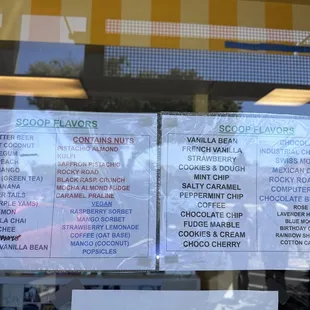 SCOOP FLAVORS
TTER BEER
T COCONUT
EGUM
EACH
(GREEN TEA)
ANANA
TER TAILS
RPLE YAMS)
MON
LA CHAI
VANILLA BEAN
CONTAINS NUTS
PISTACHIO ALMOND
KULFI
SAFFRON PISTACHIO
ROCKY ROAD
BLACK CRUNCH
MOCHA ALMOND FUDGE
CARAMEL PRALINE
VEGAN
RASPBERRY SORBET
MANGO SORBET
STRAWBERRY LEMONADE
COFFEE (OAT BASE)
MANGO (COCONUT)
POPSICLES
SCOOP FLAVORS
VANILLA BEAN
FRENCH VANILLA
STRAWBERRY
COOKIES & DOUGH
MINT CHIP
SALTY CARAMEL
PEPPERMINT CHIP
COFFEE
CHOCOLATE CHIP
FUDGE MARBLE
COOKIES & CREAM
CHOCO CHERRY
CHOCOL
INDUSTRIAL CH
SWISS M
MEXICAN C
ROCKY ROA
COMPUTER
CHOCOLATE B
ROSE
LAVENDER H
BLUE MO
BIRTHDAY
RAINBOW SH
COTTON CA